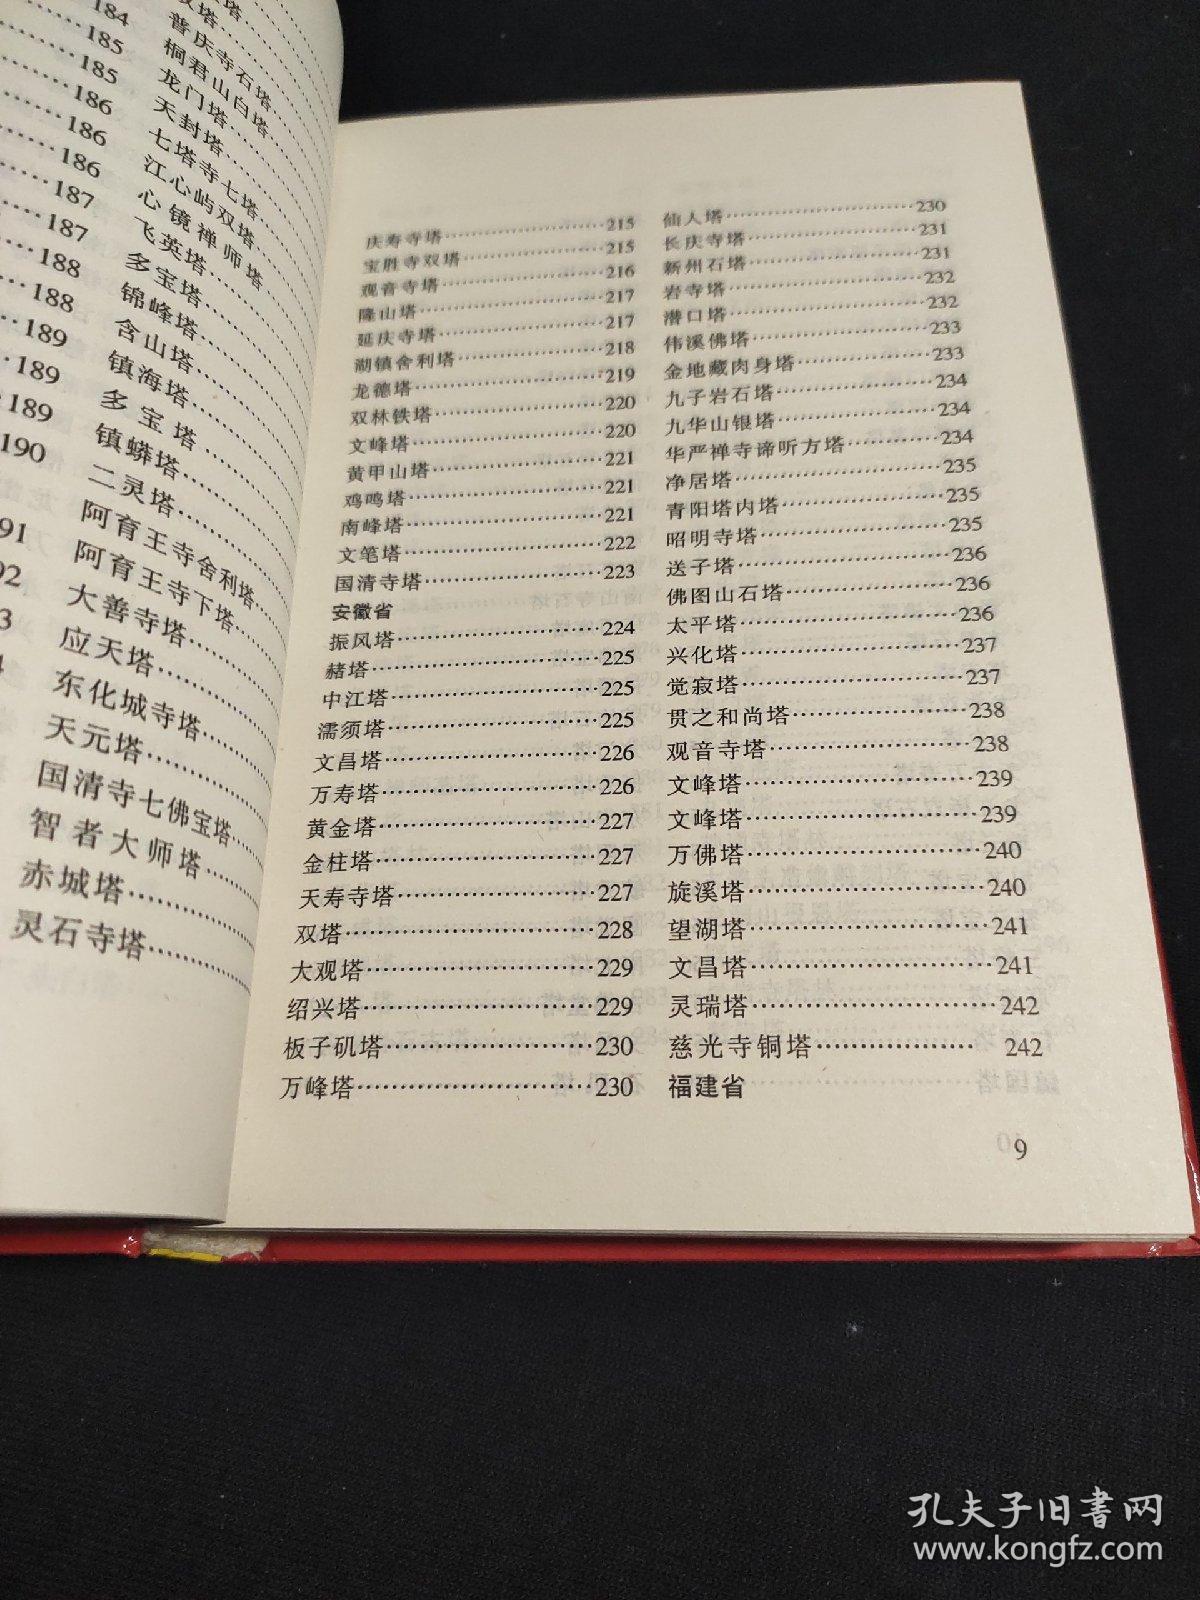 184
185
185
186
186
186
187
187
188
188
189
189
189
190
普庆寺石塔
桐君山白塔
龙门塔
天封塔
七塔寺七塔
江心屿双塔
心镜禅师塔
飞英塔
多宝塔
锦峰塔
含山塔
镇海塔
多宝塔
镇蟒塔
二灵塔
阿育王寺舍利塔
阿育王寺下塔
大善寺塔
应天塔
东化城寺塔
天元塔
国清寺七佛宝塔
智者大师塔
赤城塔
灵石寺塔
庆寿寺塔……215
宝胜寺双塔……215
观音寺塔……216
隆山塔……217
延庆寺塔……217
湖镇舍利塔……218
龙德塔……219
双林铁塔……220
文峰塔……220
黄甲山塔……221
鸡鸣塔……221
南峰塔……221
文笔塔……222
国清寺塔……223
安徽省
振风塔……224
赭塔……225
中江塔……225
濡须塔……225
文昌塔……226
万寿塔……226
黄金塔……227
金柱塔……227
天寿寺塔……227
双塔……228
大观塔……229
绍兴塔……229
板子矶塔……230
万峰塔……230
仙人塔……230
长庆寺塔……231
新州石塔……231
岩寺塔……232
潜口塔……232
伟溪佛塔……233
金地藏肉身塔……233
九子岩石塔……234
九华山银塔……234
华严禅寺谛听方塔……234
净居塔……235
青阳塔内塔……235
昭明寺塔……235
送子塔……236
佛图山石塔……236
太平塔……236
兴化塔……237
觉寂塔……237
贯之和尚塔……238
观音寺塔……238
文峰塔……239
文峰塔……239
万佛塔……240
旋溪塔……240
望湖塔……241
文昌塔……241
灵瑞塔……242
慈光寺铜塔……242
福建省
9
孔夫子旧书网
www.kongfz.com